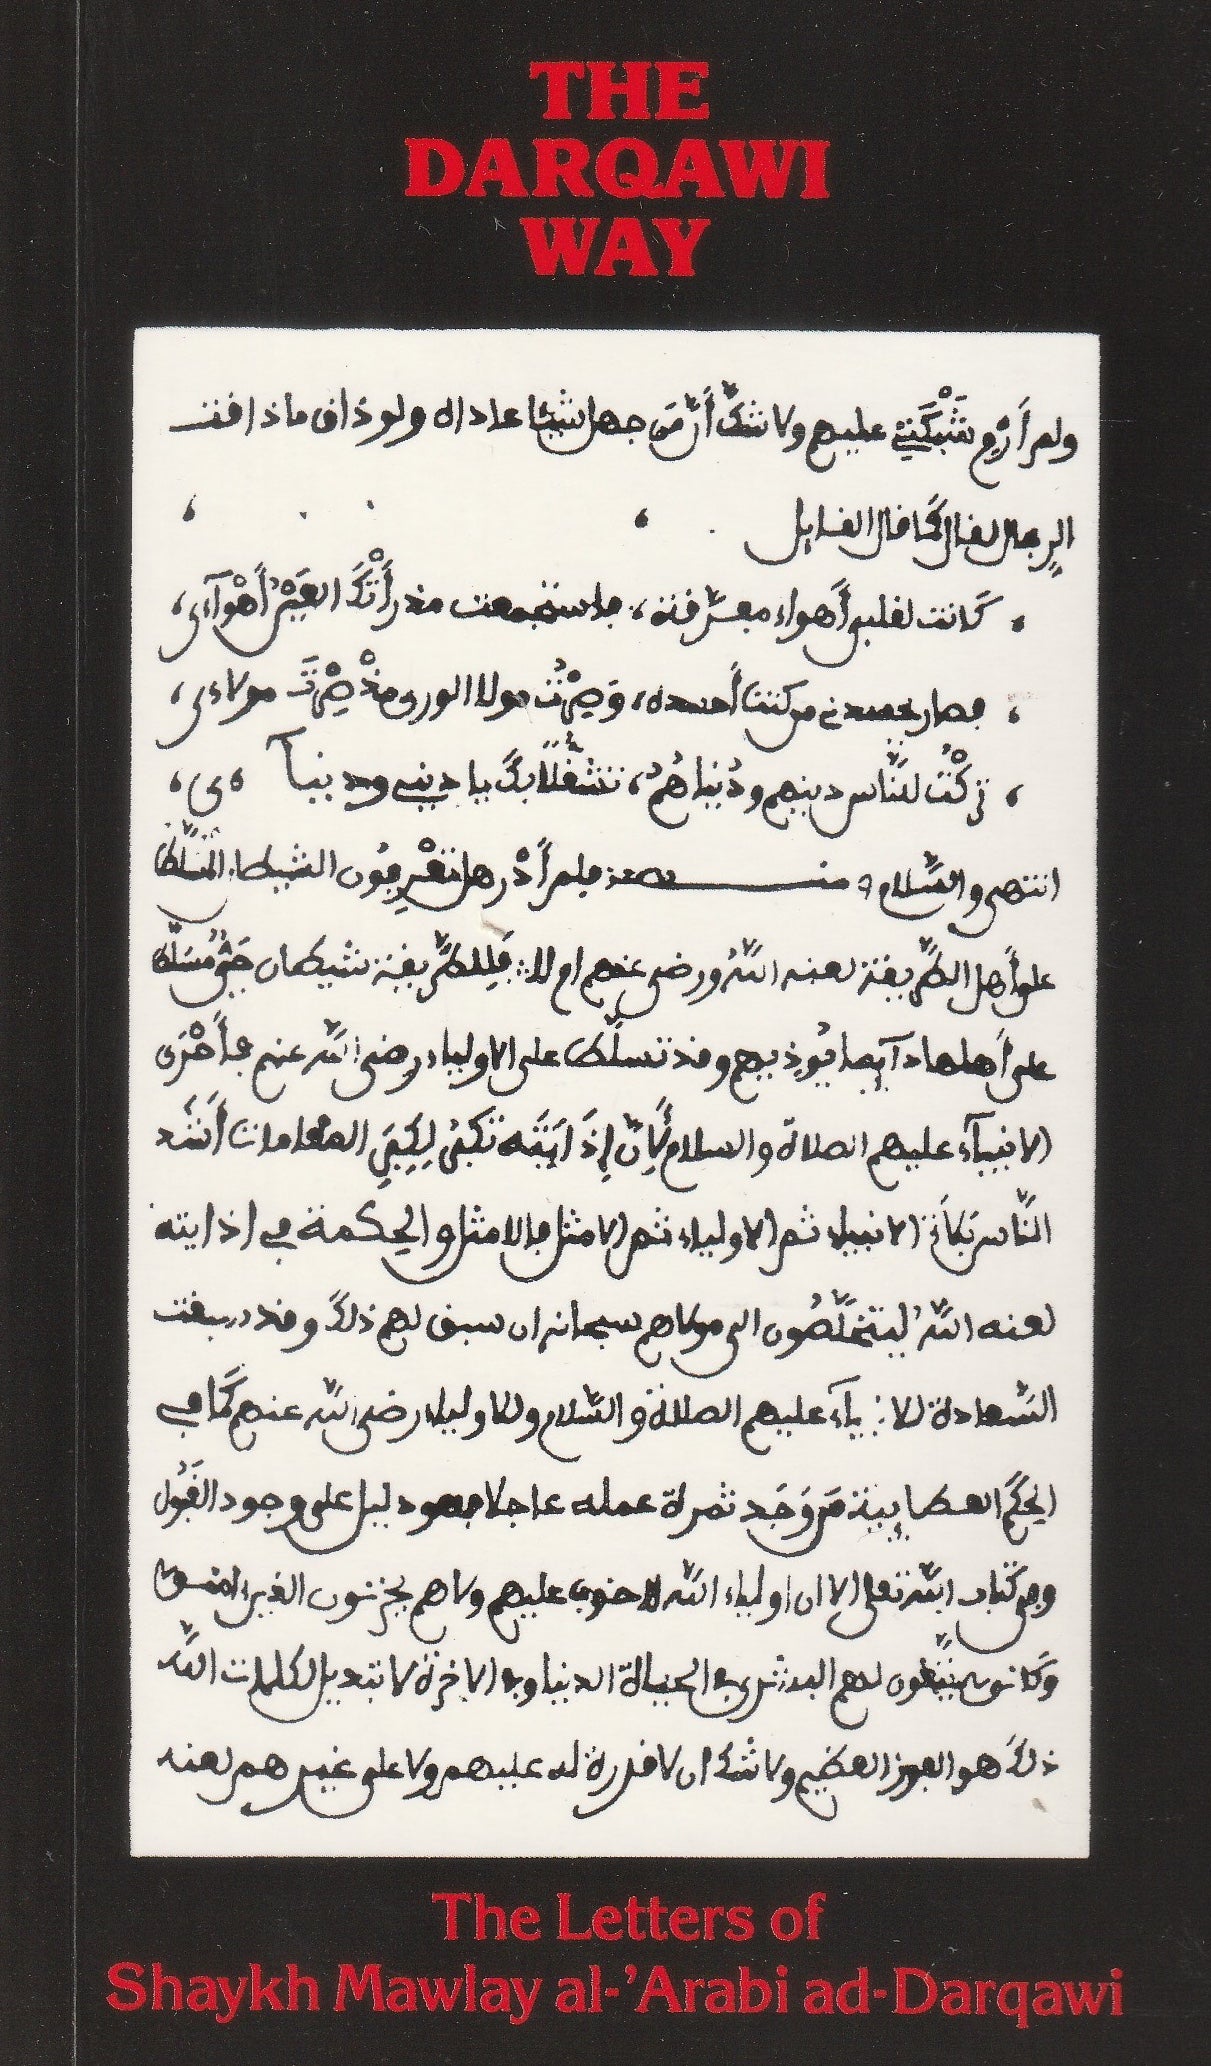 THE
DARQAWI
WAY
ولم أر تشبكني عليهم ولا شك أن من جهل شيئا عاداه ولو ذاق ماذاقت
الرجال لقال كما قال القايل
كانت لقلبي أهواء مفرقة، فاستجمعت مذ رأتك العين أهوآءى،
فصار يحسدني من كنت أحسده، وصرت مولا الورى مذ صرت مولاءى،
تركت للناس دينهم ودنياهم، تشغلا بك يا ديني ودنيآءى،
انتهى والسلام ومنه فلم أدر هل تعرفون الشيطان المسلط
على أهل الطريقة لعنه الله ورضي عنهم ام لا فللطريقة شيطان جني مسلط
على أهلها دآيما يوذيهم وقد تسلط على الاولياء رضي الله عنهم فأحرى
الانبيآء عليهم الصلاة والسلام لأن إذايته تكفي لكفي المقامات أشد
الناس بلاء الانبياء ثم الاولياء ثم الامثل فالامثل والحكمة في اذايته
لعنه الله ليتخلصون الى مولاهم سبحانه ان سبق لهم ذلك وقد سبقت
السعادة للانبيآء عليهم الصلاة والسلام وللاولياء رضي الله عنهم كما في
الحكم العطايية من وجد ثمرة عمله عاجلا فهو دليل على وجود القبول
وفي كتاب الله تعلى الا ان اولياء الله لا خوف عليهم ولا هم يحزنون الذين امنوا
وكانوا يتقون لهم البشرى في الحياة الدنيا وفي الاخرة لا تبديل لكلمات الله
ذلك هو الفوز العظيم ولا شك ان لا قدرة له عليهم ولا على غيرهم لعنه
The Letters of
Shaykh Mawlay al-'Arabi ad-Darqawi